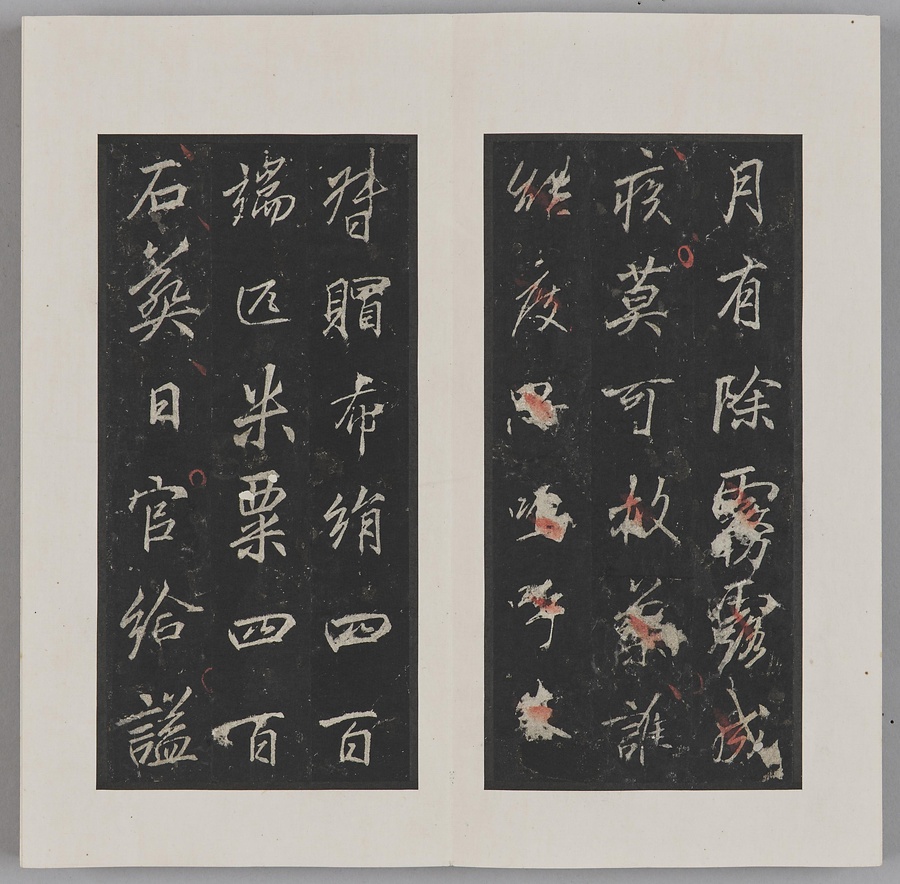 月有除霧露感
疾莫可救藥誰
能度思嗚呼哀
督賵布絹四百
端匹米粟四百
石葬日官給謚